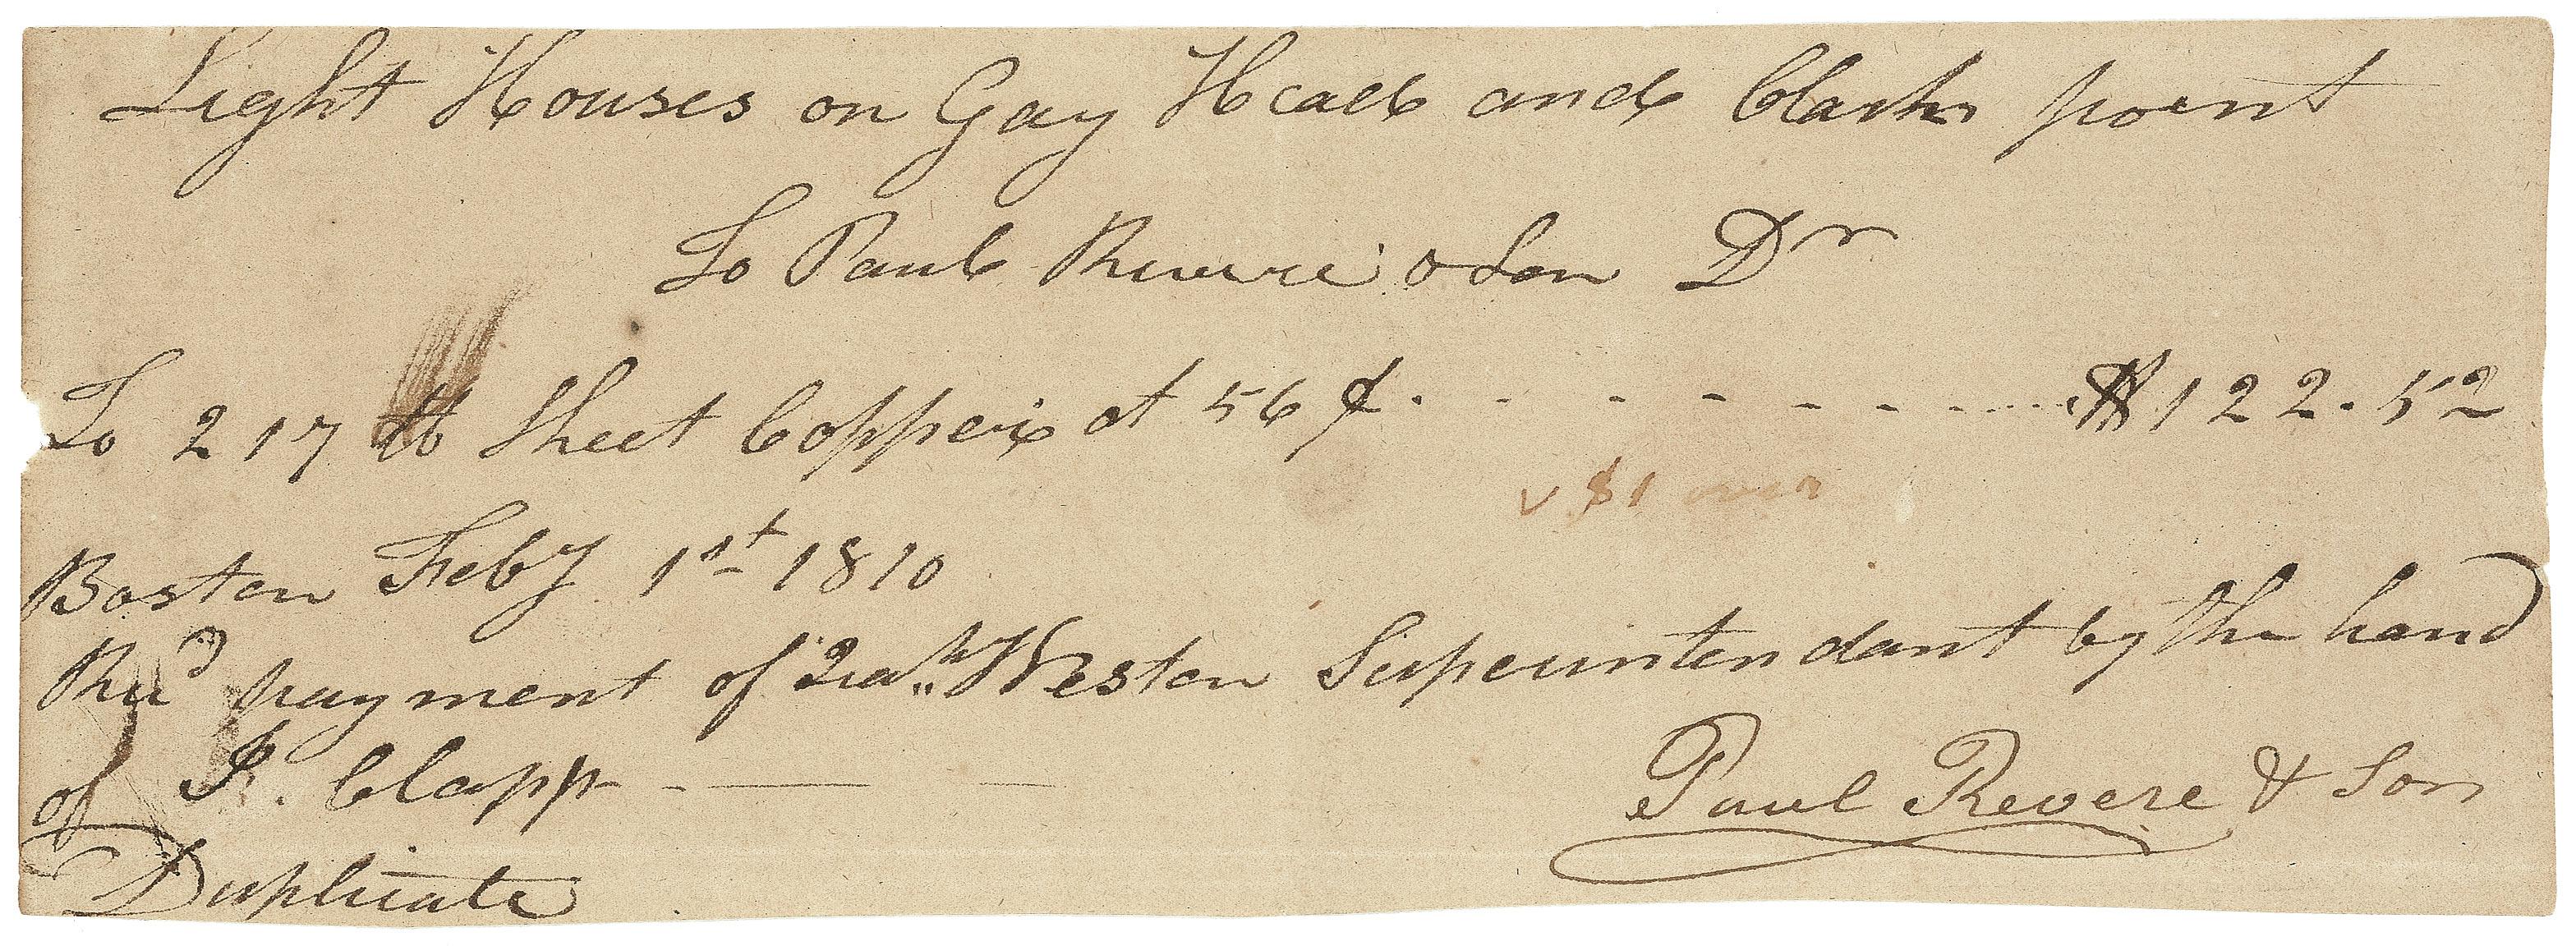 Light Houses on Gay Head and Clarks point
To Paul Revere & Son Dr
To 217 lb Sheet Copper at 56 ¢ . - - - - - - - $122.52
v $1 over
Boston Feby 1st 1810
Recd payment of Zah Weston Superintendant by the hand
of S. Clapp - — —
Paul Revere & Son
Duplicate